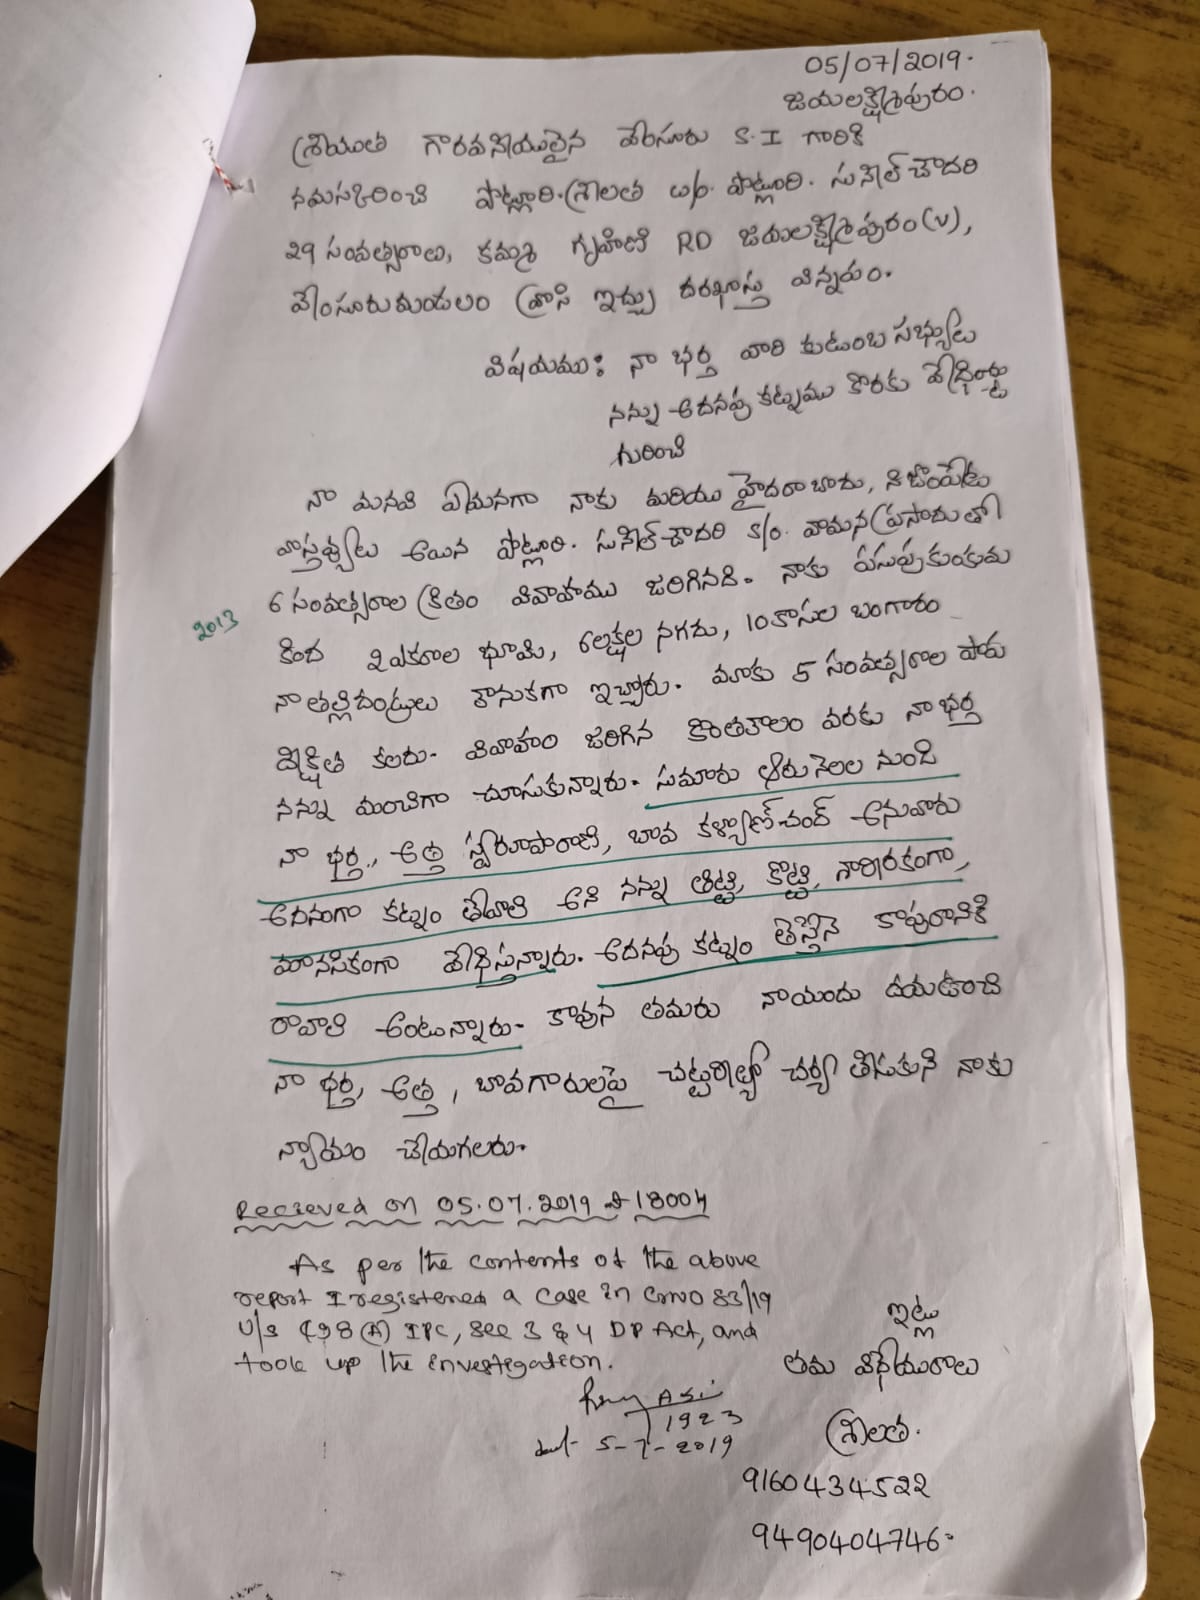 05/07/2019.
జయలక్ష్మిపురం.
శ్రీయుత గౌరవనీయులైన వేంసూరు S.I గారికి
నమస్కరించి పోట్లూరి.శ్రీలత w/o. పోట్లూరి. సునీల్ చౌదరి
29 సంవత్సరాలు, కమ్మ గృహిణి R/O జయలక్ష్మిపురం(V),
వేంసూరుమండలం వ్రాసి ఇచ్చు దరఖాస్తు విన్నపం.
విషయము: నా భర్త వారి కుటుంబ సభ్యులు
నన్ను అదనపు కట్నము కొరకు వేధింపు
గురించి
నా మనవి ఏమనగా నాకు మరియు హైదరాబాదు, నిజాంపేట
వాస్తవ్యులు అయిన పోట్లూరి. సునీల్ చౌదరి s/o. వామనప్రసాదుతో
2013
6 సంవత్సరాల క్రితం వివాహము జరిగినది. నాకు పసుపుకుంకుమ
కింద 2 ఎకరాల భూమి, 6లక్షల నగదు, 10కాసుల బంగారం
నా తల్లిదండ్రులు కానుకగా ఇచ్చారు. మాకు 5 సంవత్సరాల పాప
దీక్షిత కలదు. వివాహం జరిగిన కొంతకాలం వరకు నా భర్త
నన్ను మంచిగా చూసుకున్నారు. సుమారు ఆరు నెలల నుండి
నా భర్త, అత్త స్వరూపారాణి, బావ కళ్యాణ్ చంద్ అనువారు
అదనంగా కట్నం తేవాలి అని నన్ను తిట్టి, కొట్టి, శారీరకంగా,
మానసికంగా వేధిస్తున్నారు. అదనపు కట్నం తెస్తేనే కాపురానికి
రావాలి అంటున్నారు. కావున తమరు నాయందు దయఉంచి
నా భర్త, అత్త, బావగారులపై చట్టరీత్యా చర్య తీసుకుని నాకు
న్యాయం చేయగలరు.
Recieved on 05.07.2019 at 1800h
As per the contents of the above
report I registered a case in Cr.NO 83/19
U/s 498(A) IPC, Sec 3 & 4 DP Act, and
took up the investigation.
ASI
1923
5-7-2019
ఇట్లు
తమ విధేయురాలు
శ్రీలత.
9160434522
9490404746.